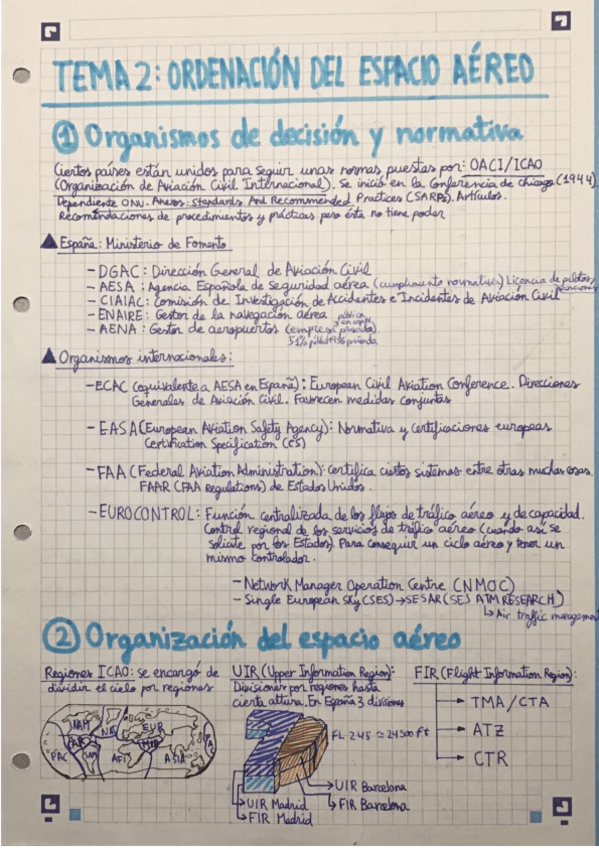 TEMA 2: ORDENACIÓN DEL ESPACIO AÉREO
① Organismos de decisión y normativa
Ciertos países están unidos para seguir unas normas puestas por: OACI/ICAO
(Organización de Aviación Civil Internacional). Se inició en la Conferencia de Chicago (1944).
Dependiente ONU. Anexos: Standards And Recommended Practices (SARPs). Artículos.
Recomendaciones de procedimientos y prácticas pero ésta no tiene poder
España: Ministerio de Fomento
- DGAC: Dirección General de Aviación Civil
- AESA: Agencia Española de Seguridad aérea (cumplimiento normativas) Licencia de pilotos,
- CIAIAC: Comisión de Investigación de Accidentes e Incidentes de Aviación Civil
- ENAIRE: Gestor de la navegación aérea
- AENA: Gestor de aeropuertos (empresa privada)
51% pública 49% privada
Organismos internacionales:
- ECAC (equivalente a AESA en España): European Civil Aviation Conference. Direcciones
Generales de Aviación Civil. Favorecen medidas conjuntas
- EASA (European Aviation Safety Agency): Normativa y certificaciones europeas
Certification Specification (CS)
- FAA (Federal Aviation Administration): Certifica ciertos sistemas entre otras muchas cosas.
FAAR (FAA Regulations) de Estados Unidos.
- EUROCONTROL: Función centralizada de los flujos de tráfico aéreo y de capacidad.
Control regional de los servicios de tráfico aéreo (cuando así se
solicite por los Estados). Para conseguir un cielo aéreo y tener un
mismo controlador.
- Network Manager Operation Centre (NMOC)
- Single European Sky (SES) → SESAR (SES ATM RESEARCH)
↳ Air traffic management
② Organización del espacio aéreo
Regiones ICAO: se encargó de
dividir el cielo por regiones
UIR (Upper Information Region):
Divisiones por regiones hasta
cierta altura. En España 3 divisiones
FIR (Flight Information Region):
→ TMA/CTA
→ ATZ
→ CTR
NAM
NAT
EUR
CAR
MID
PAC
SAM
AFI
ASIA
PAC
FL 245 ≈ 24500 ft
UIR Barcelona
FIR Barcelona
UIR Madrid
FIR Madrid